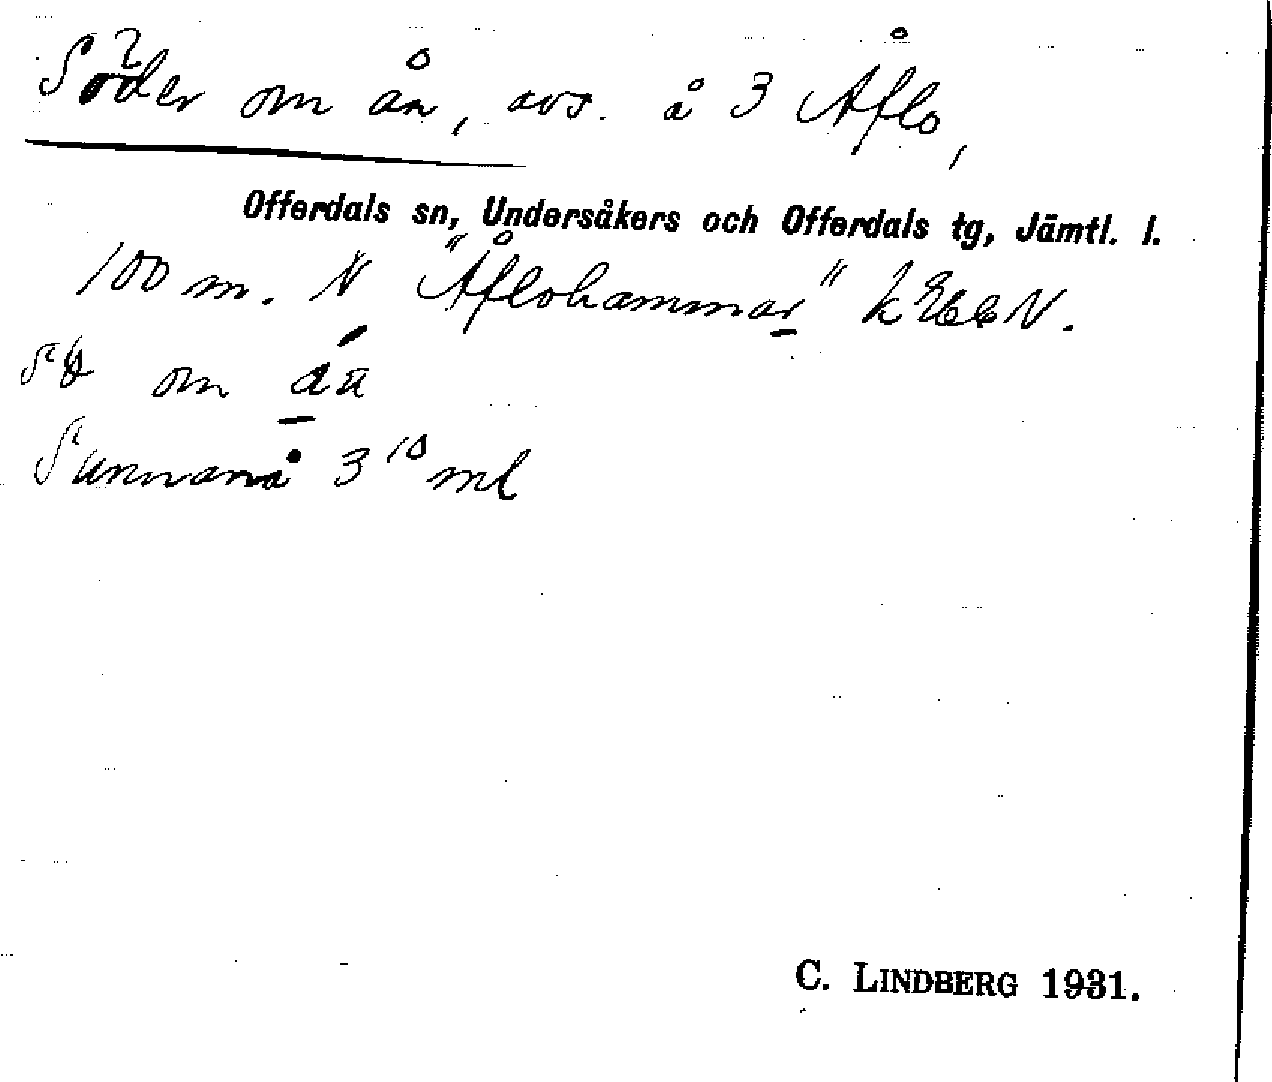 Söder om ån, avs. å 3 Åflo,
Offerdals sn, Undersåkers och Offerdals tg, Jämtl. l.
100 m. N "Åflohammar" k
om
Sunnanå 3¹⁰ ml
C. LINDBERG 1931.